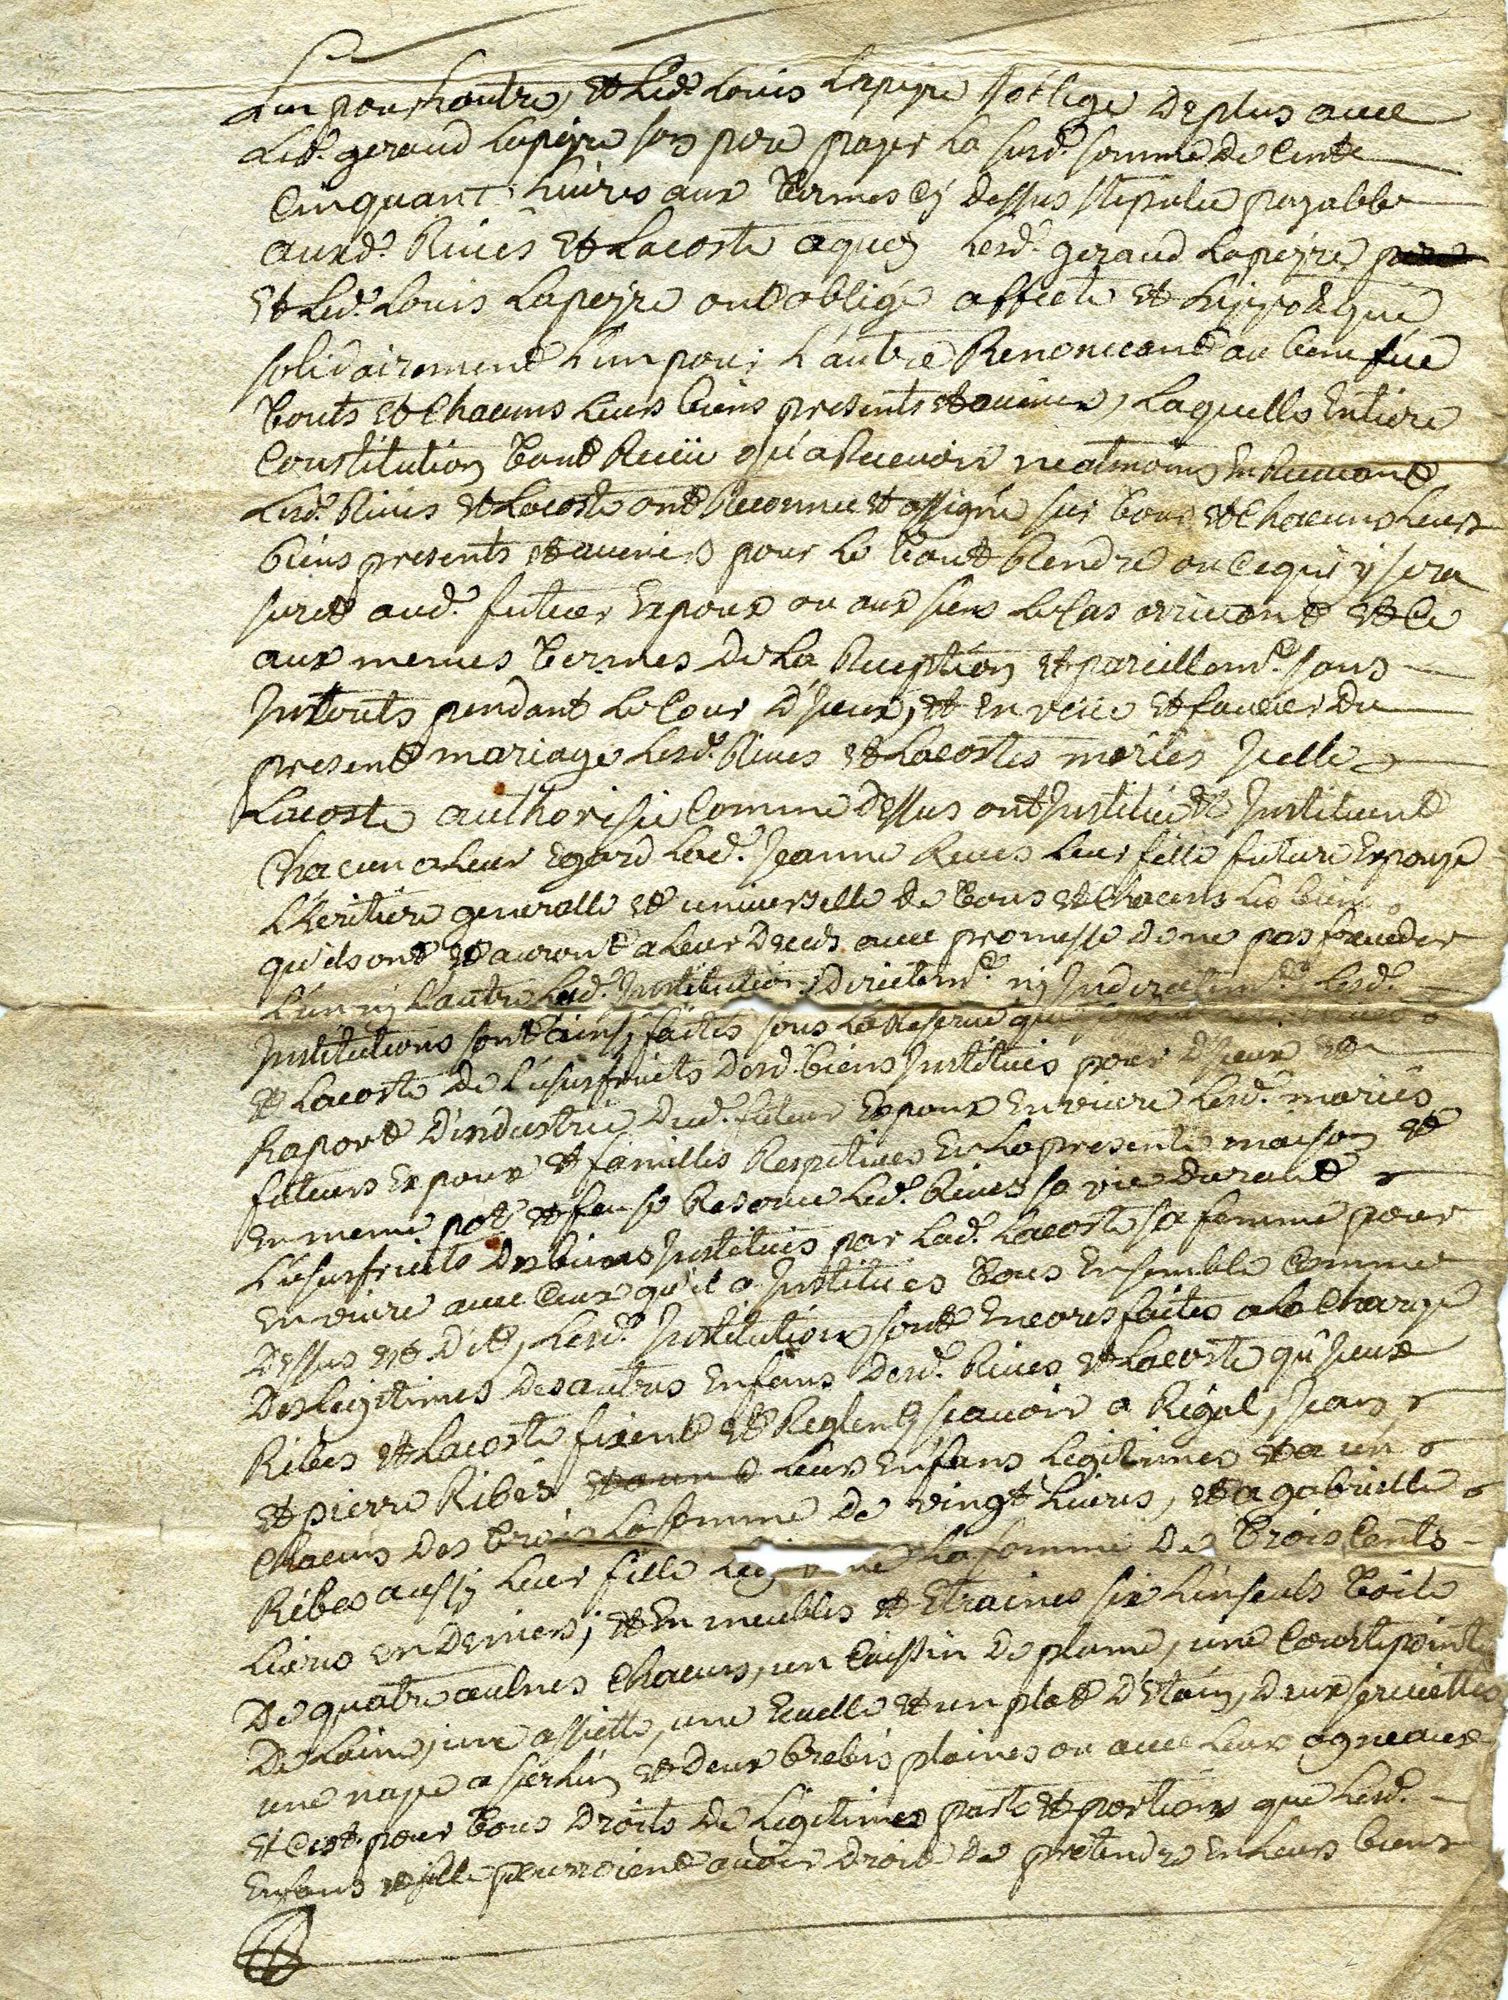 L'un pour Lautre, et Led. Louis Lapeyre soblige deplus avec
Led. geraud Lapeyre son pere payer La susd. somme de Cent
Cinquant Livres aux termes cy dessus stipulée payable
auxd. Rives et Lacoste aquoy Lesd. geraud Lapeyre
et Led. Louis Lapeyre ont obligé affecté et hippotequé
solidairement L'un pour L'autre Renonceant au benefice
touts et Chacuns Leurs biens presents et avenir, Laquelle Entiere
Constitution tant Recüe qu'a Recevoir neatmoins En Recevant
Lesd. Rives et Lacoste ont Reconnue et assigné sur tous et Chacuns Leurs
biens presents et avenirs pour Le tout Rendre ou Cequi y sera
suret aud. futeur Expoux ou aux siens Le Cas arrivant et Ce
aux memes termes de La Reception et pareillem.t sans
Jnterets pendant Le Cour d'Jceux, et En veüe et faveur du
present mariage Lesd. Rives et Lacostes mariés Jcelle
Lacoste authorisée Comme dessus ont Jnstitué et Jnstituent
Chacun a Leur Egard Lad. Jeanne Rives Leur fille future Expouze
L'heritiere generalle et universelle de tous et Chacuns Les biens
qu'ils ont et auront a Leur Decés avec promesse de ne pas frauder
L'un ny L'autre Lesd. Jnstitution Directem.t ny Jndirectem.t Lesd.
Jnstitutions sont Ainsy faites sous La Reserve que
et Lacoste de L'usurfruits desd. biens Jnstitués pour d'Jceux et
Raport d'industrie dud. futeur Expoux En vivre Lesd. mariés
futeurs Expoux et familles Respetives En La presente maison et
En meme pot et feu se Reserve Led. Rives sa vie durant
L'usurfruits des biens Jnstitués par Lad. Lacoste sa femme pour
En vivre avec Ceux qu'il a Jnstitués tous Ensemble Comme
Dessus est dit, Lesd. Jnstitutions sont Encores faites a La Charge
Des Legitimes des autres Enfans desd. Rives et Lacoste qu'Jceux
Ribes et Lacoste fixent et Reglent sçavoir a Rigal, Jean
et pierre Ribes Leurs Enfans Legitimes et a un
Chacuns des trois La somme de vingt Livres, et a gabrielle
Ribes aussy Leur fille La somme de trois Cents
Livres en deniers, et En meubles et Etraines six Linseuls toile
De quatre aulnes Chacuns, un Cuissin de plume, une Courtepointe
De Laine, une assiette, une Ecuelle et un plat d'Etain, deux serviettes
une nape et deux brebis plaines ou avec Leurs agneaux
et C'est pour tous Droits de Legitimes parts et portions que Lesd.
Enfans et fille pourroient avoir droit de pretendre En Leurs biens